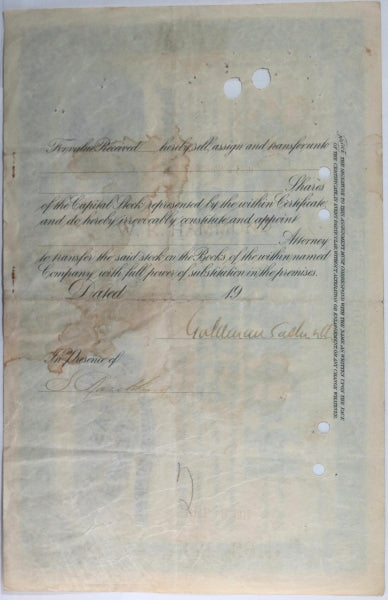 For value Received hereby sell, assign and transfer unto
Shares
of the Capital Stock represented by the within Certificate,
and do hereby irrevocably constitute and appoint
Attorney
to transfer the said stock on the Books of the within named
Company with full power of substitution in the premises.
Dated 19
In Presence of
NOTICE. THE SIGNATURE TO THIS ASSIGNMENT MUST CORRESPOND WITH THE NAME AS WRITTEN UPON THE FACE
OF THE CERTIFICATE IN EVERY PARTICULAR WITHOUT ALTERATION OR ENLARGEMENT OR ANY CHANGE WHATEVER.